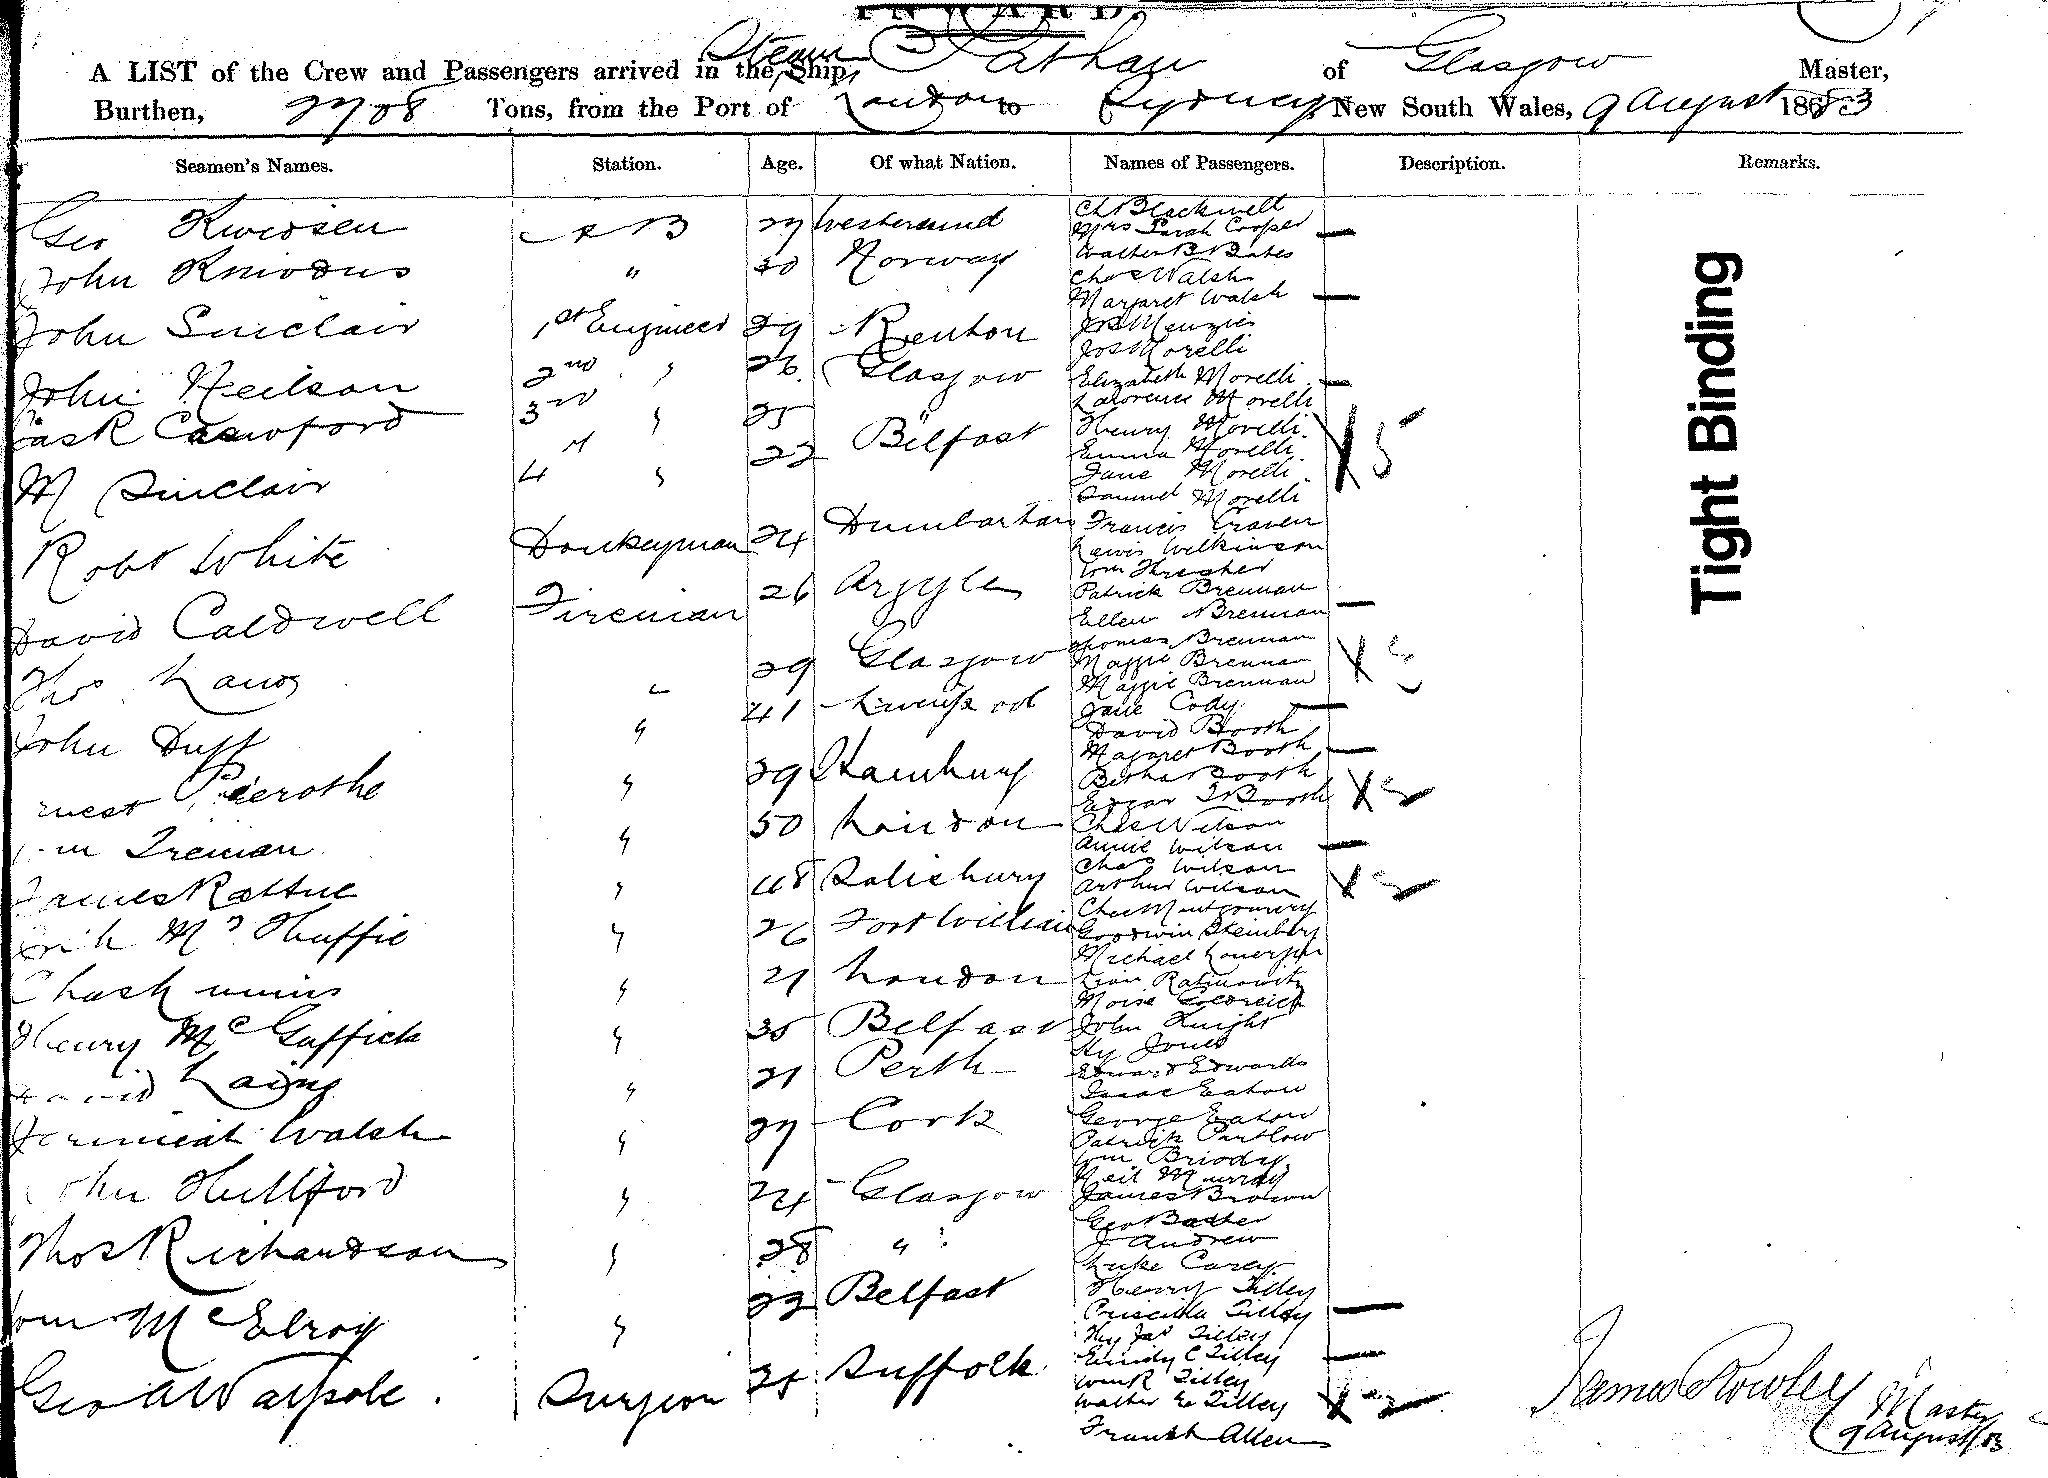 INWARD.
A LIST of the Crew and Passengers arrived in the Steam Ship Pathan of Glasgow Master,
Burthen, 2708 Tons, from the Port of London to Sydney New South Wales, 9 August 1883
Seamen's Names. Station. Age. Of what Nation. Names of Passengers. Description. Remarks.
Geo A B 27
John 30 Norway
John Sinclair 1st Engineer 29 Renton
John Neilson 2nd " 26 Glasgow
Crawford 3rd " 25 "
M Sinclair 4 " 22 Belfast
Robt White Donkeyman 24 Dumbarton
David Caldwell Fireman 26 Argyle
Thos Lang " 29 Glasgow
John Duff " 41 Liverpool
Pierothe " 29 Hamburg
Treman " 50 London
James Rattue " 48 Salisbury
" 26 Fort William
Chas " 21 London
Henry McGuffick " 35 Belfast
David Laing " 21 Perth
Jeremiah Walsh " 27 Cork
John Hullford " 24 Glasgow
Thos Richardson " 28 "
Wm McElroy " 22 Belfast
Geo A Walpole. Surgeon 25 Suffolk
Ch Blackwell
Mrs Sarah Cooper —
Walter B Bates
Chas Walsh
Margaret Walsh —
Jas Menzies
Jos Morelli
Elizabeth Morelli —
Lawrence Morelli
Henry Morelli
Emma Morelli X 5
Jane Morelli
Samuel Morelli
Francis Craven
Lewis Wilkinson
Wm Thresher
Patrick Brennan
Ellen Brennan —
Thomas Brennan
Maggie Brennan X 3
Maggie Brennan
Jane Cody —
David Booth
Magaret Booth —
Bertha Booth
Edgar T Booth X 2
Chas Wilson
Annie Wilson —
Chas Wilson
Arthur Wilson X 2
Chas Montgomery
Goodwin Steinberg
Michael
Rabinowitz
Moise
John Knight
Hy Jones
Edward Edwards
Isaac Eaton
George Eaton
Patrick Partlow
Wm Briody
Neil Murray
James Brown
Geo Baxter
J Andrew
Luke Carey
Henry Tilley
Priscilla Tilley —
Hy Jas Tilley
Emily C Tilley —
Wm R Tilley
Walter E Tilley X 3
Frank Allen
Tight Binding
James Rowley Master
9 August/83